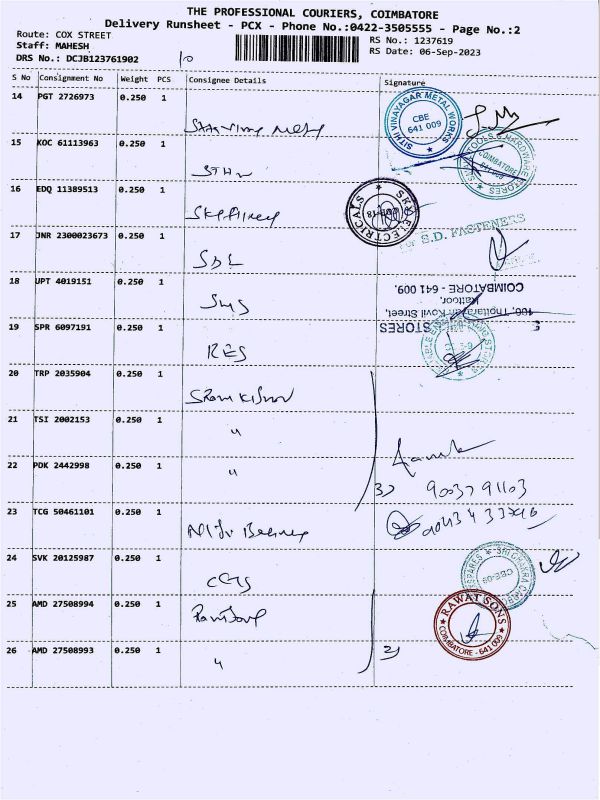 THE PROFESSIONAL COURIERS, COIMBATORE
Delivery Runsheet - PCX - Phone No.:0422-3505555 - Page No.:2
Route: COX STREET
Staff: MAHESH
DRS No.: DCJB123761902
10
RS No.: 1237619
RS Date: 06-Sep-2023
S No Consignment No Weight PCS Consignee Details Signature
14 PGT 2726973 0.250 1
SITHI VINAYAGAR METAL WORKS
CBE
641 009
15 KOC 61113963 0.250 1
TOOLS & HARDWARE STORES
COIMBATORE
641
16 EDQ 11389513 0.250 1
SKP ELECTRICALS
17 JNR 2300023673 0.250 1
S.D. FASTENERS
18 UPT 4019151 0.250 1
SMS
COIMBATORE - 641 009.
Kattoor,
Kovil Street,
STORES
19 SPR 6097191 0.250 1
RES
20 TRP 2035904 0.250 1
21 TSI 2002153 0.250 1
"
22 PDK 2442998 0.250 1
"
3) 9003791103
23 TCG 50461101 0.250 1
24 SVK 20125987 0.250 1
SRI CHAKRA
SPARES
CBE-09
25 AMD 27508994 0.250 1
RAWAT SONS
COIMBATORE - 641 009
26 AMD 27508993 0.250 1
"
2)